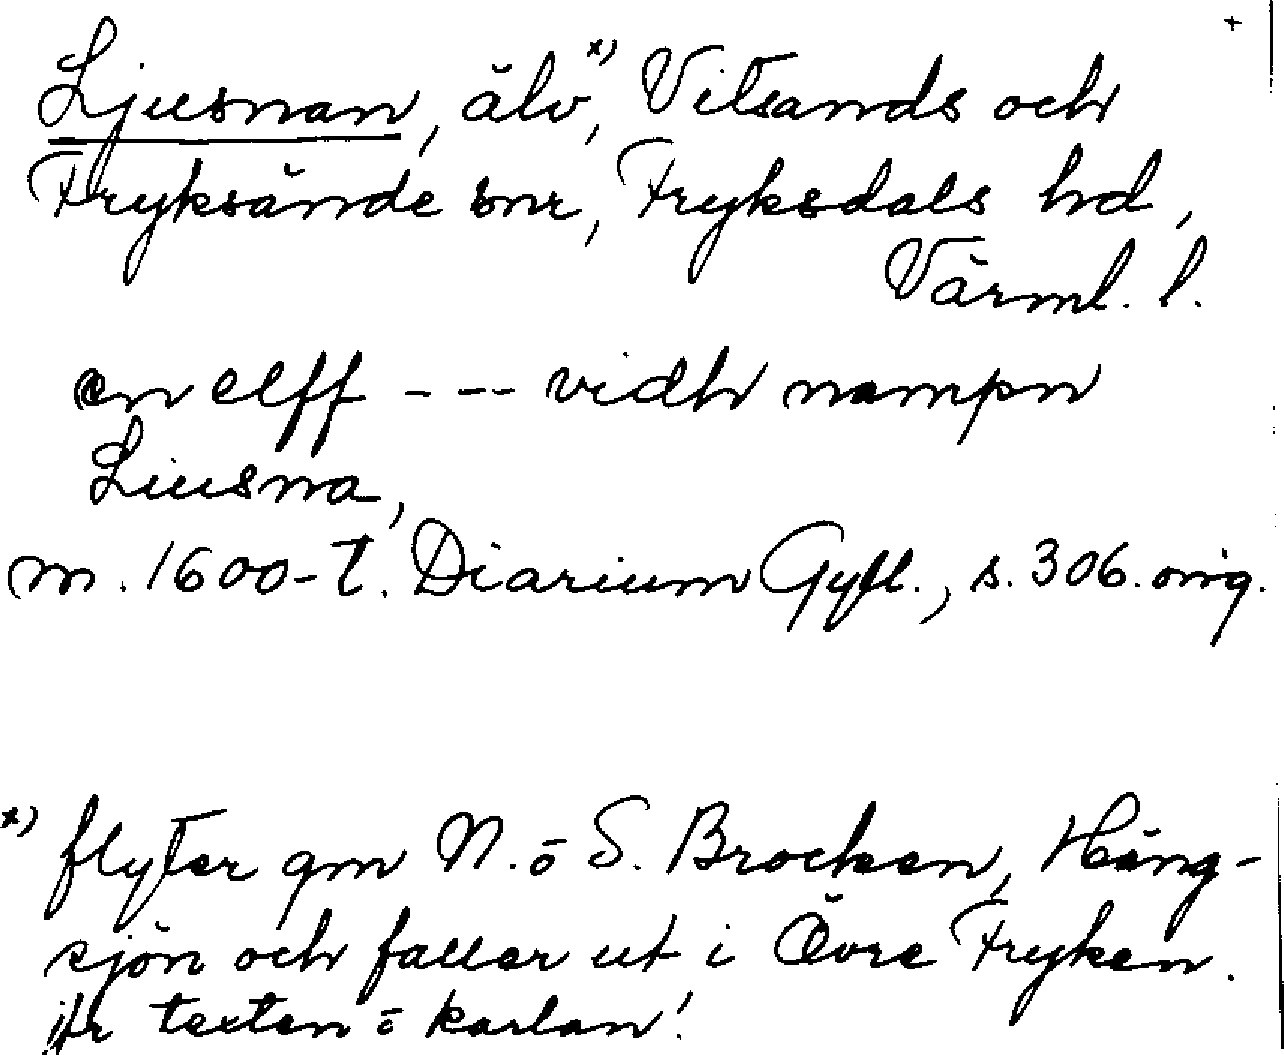 +
Ljusnan, älv,x) Vitsands och
Fryksände snr, Fryksdals hd,
Värml. l.
en elff - - - vidh nampn
Liusna,
m. 1600-t. Diarium Gyll., s. 306. orig.
x) flyter gm N. o S. Brocken, Häng-
sjön och faller ut i Övre Fryken.
jfr texten o kartan!